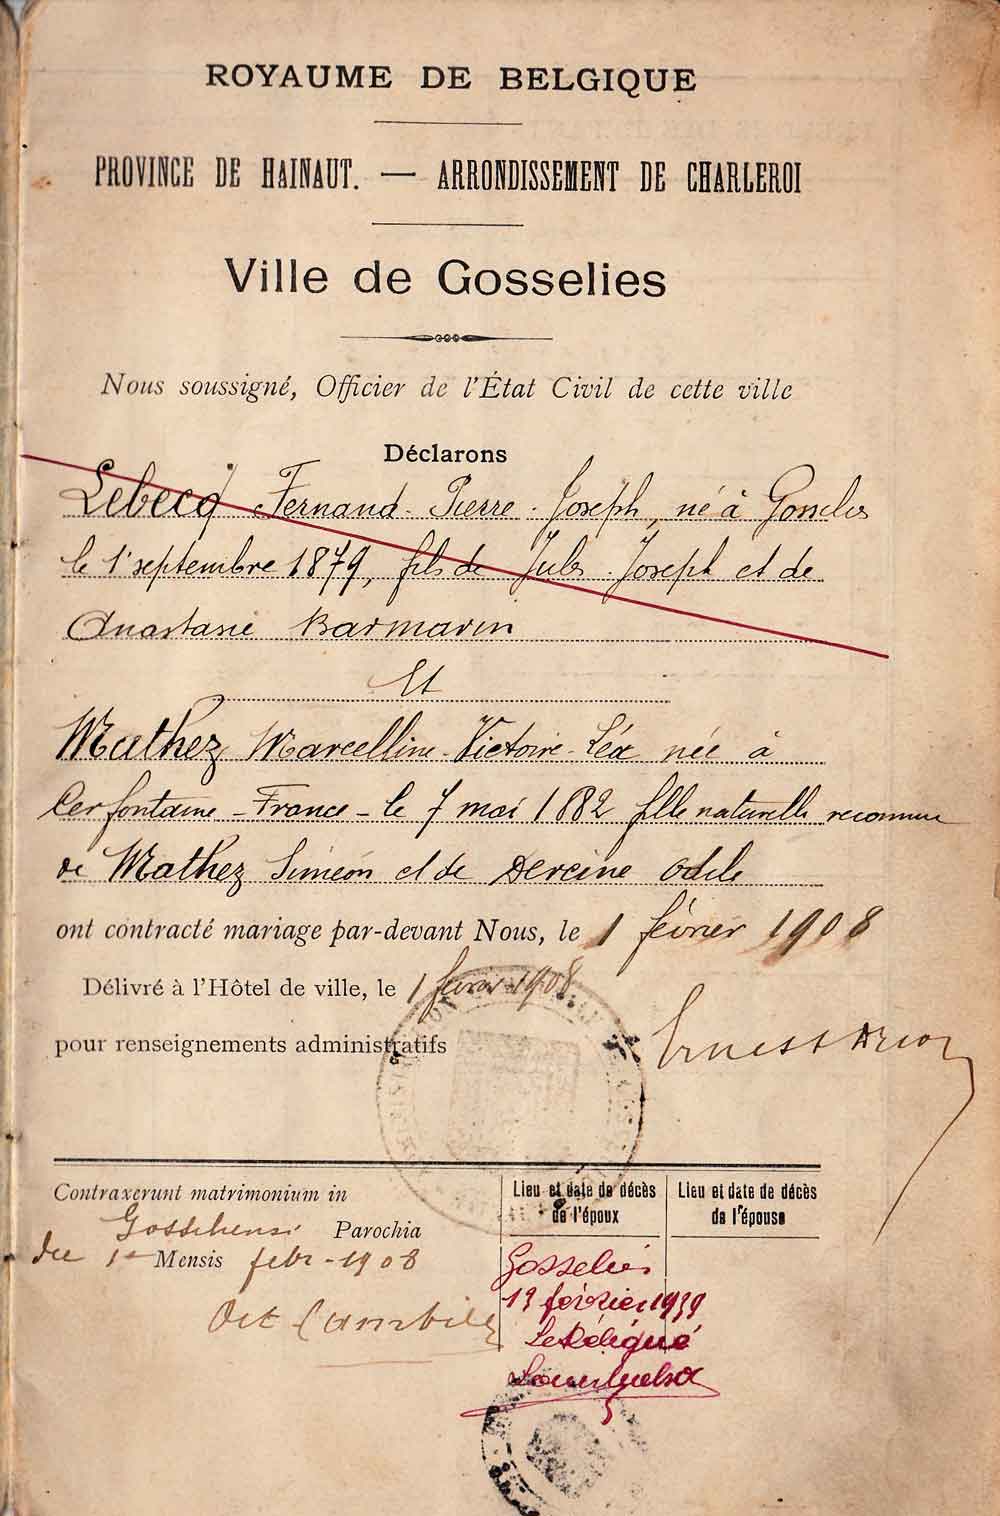 ROYAUME DE BELGIQUE
PROVINCE DE HAINAUT. — ARRONDISSEMENT DE CHARLEROI
Ville de Gosselies
Nous soussigné, Officier de l'État Civil de cette ville
Déclarons
Lebecq Fernand-Pierre-Joseph, né à Gosselies
le 1er septembre 1879, fils de Jules-Joseph et de
Anastasie Barmarin
Et
Mathez Marcelline-Victoire-Léa née à
Cerfontaine-France-le 7 mai 1882 fille naturelle reconnue
de Mathez Siméon et de Dercine Odile
ont contracté mariage par-devant Nous, le 1 février 1908
Délivré à l'Hôtel de ville, le 1 février 1908
pour renseignements administratifs
Ernest
Contraxerunt matrimonium in
Parochia
die 1a Mensis febr-1908
Lieu et date de décès
de l'époux
Lieu et date de décès
de l'épouse
Gosselies
13 février 1939
Le Délégué